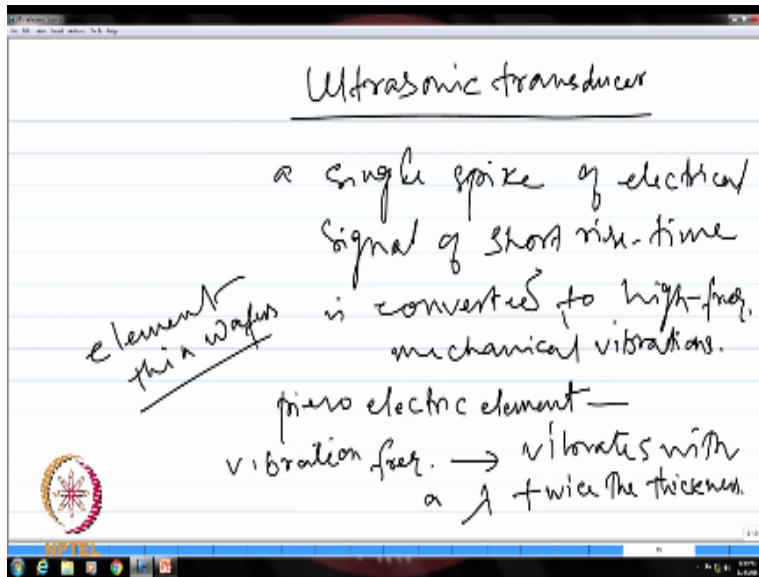 Ultrasonic transducer
a single spike of electrical
signal of short rise-time
is converted to high-freq.
mechanical vibrations.
element
thin wafers
piezo electric element —
vibration freq. → vibrates with
a λ twice the thickness.
NPTEL